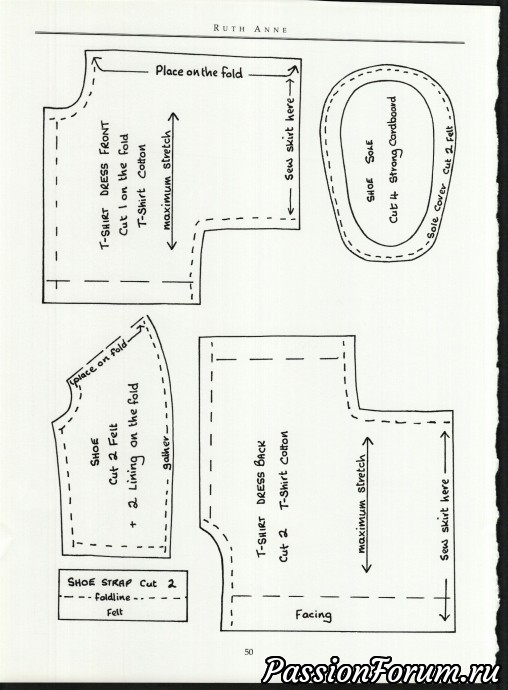 RUTH ANNE
Place on the fold
T-SHIRT DRESS FRONT
Cut 1 on the fold
T-Shirt Cotton
maximum stretch
Sew skirt here
SHOE SOLE
Cut 4 Strong Cardboard
Sole Cover Cut 2 Felt
place on fold
SHOE
Cut 2 Felt
+ 2 Lining on the fold
gather
SHOE STRAP Cut 2
foldline
Felt
T-SHIRT DRESS BACK
Cut 2 T-Shirt Cotton
maximum stretch
Sew skirt here
Facing
50
PassionForum.ru